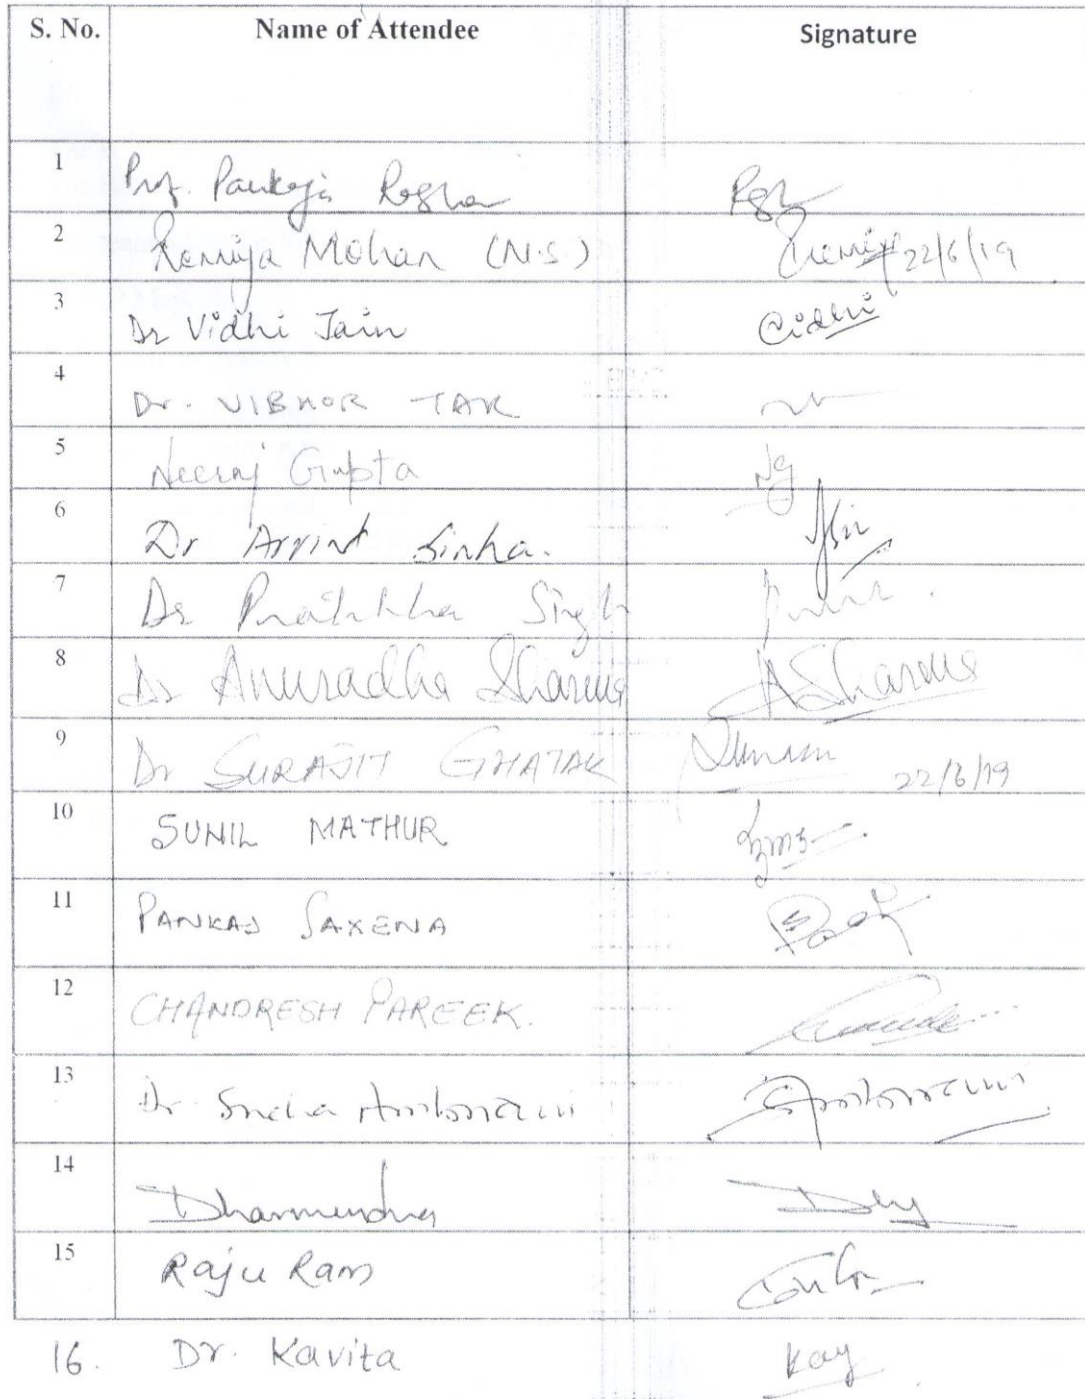 S. No. Name of Attendee Signature
1 Prof. Pankaja Ragha
2 Remija Mohan (N.S) 22/6/19
3 Dr Vidhi Jain Vidhi
4 Dr. VIBHOR TAK
5 Neeraj Gupta Ng
6 Dr Arvind Sinha.
7 Dr Pratibha Singh
8 Dr Anuradha Sharma ASharma
9 Dr SURAJIT GHATAK 22/6/19
10 SUNIL MATHUR
11 PANKAJ SAXENA
12 CHANDRESH PAREEK.
13 Dr Sneha Ambwani SAmbwani
14 Dharmendra
15 Raju Ram
16. Dr. Kavita Kav